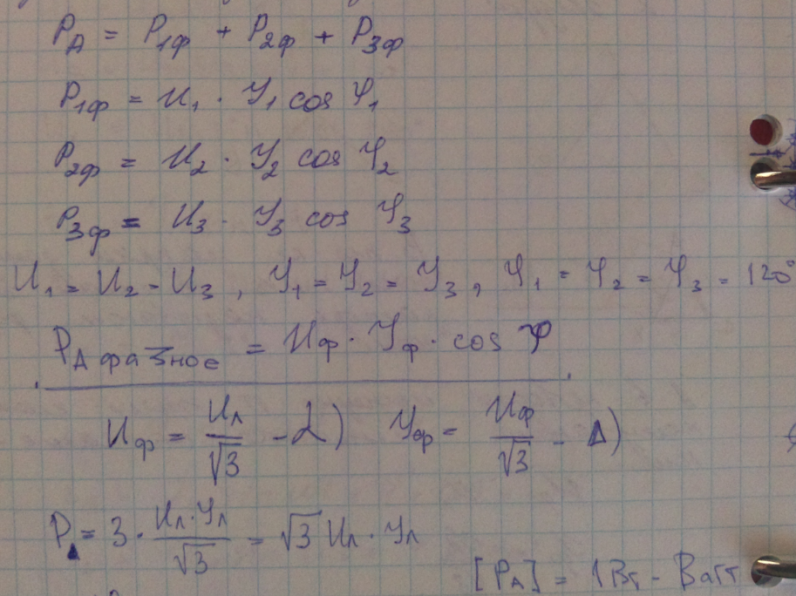 P_A = P_1ф + P_2ф + P_3ф
P_1ф = U_1 · Y_1 cos φ_1
P_2ф = U_2 · Y_2 cos φ_2
P_3ф = U_3 · Y_3 cos φ_3
U_1 = U_2 = U_3 , Y_1 = Y_2 = Y_3 , φ_1 = φ_2 = φ_3 = 120°
P_A фазное = Uф · Yф · cos φ
Uф = Uл/√3 - λ) Yф = Uф/√3 - Δ)
P_A = 3 · Uл·Yл/√3 = √3 Uл · Yл
[P_A] = 1Вт - Ватт